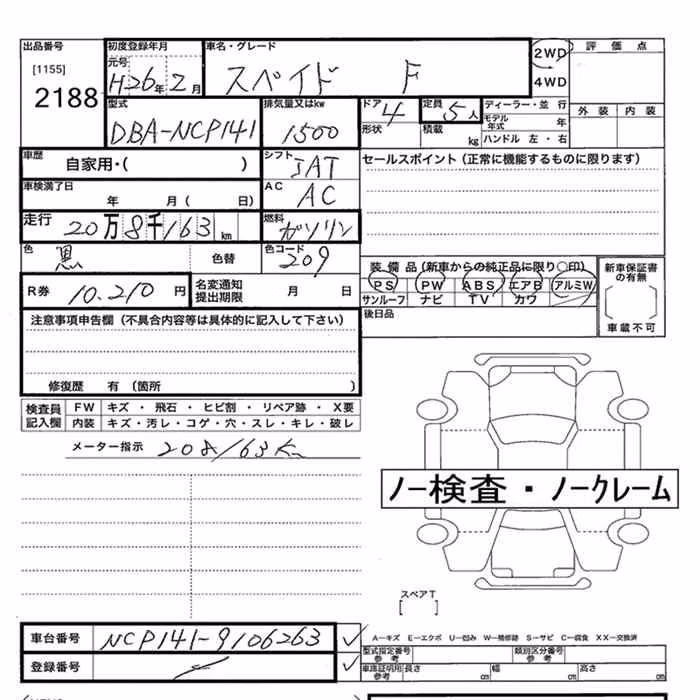 出品番号 初度登録年月 車名・グレード 2WD 評価点
[1155] 元号 H26年2月 スペイド F 4WD
2188
型式 排気量又はkw ドア 4 定員 5人 ディーラー・並行 外装 内装
DBA-NCP141 1500 形状 積載 kg モデル年式 年
ハンドル 左・右
車歴 自家用・( ) シフト IAT セールスポイント(正常に機能するものに限ります)
車検満了日 年 月( 日) AC AC
走行 20万8千163km 燃料 ガソリン
色 黒 色替 色コード 209
装備品(新車からの純正品に限り○印) 新車保証書の有無
R券 10.210円 名変通知提出期限 月 日 PS PW ABS エアB アルミW
サンルーフ ナビ TV カワ
[ ]
後日品 車載不可
注意事項申告欄(不具合内容等は具体的に記入して下さい)
修復歴 有(箇所 )
検査員記入欄 FW キズ・飛石・ヒビ割・リペア跡・X要
内装 キズ・汚レ・コゲ・穴・スレ・キレ・破レ
メーター指示 208163K
ノー検査・ノークレーム
スペアT
[ ]
車台番号 NCP141-9106263 A-キズ E-エクボ U-凹み W-補修跡 S-サビ C-腐食 XX-交換済
型式指定番号 参考 類別区分番号 参考
登録番号 車庫証明用参考 長さ cm 幅 cm 高さ cm